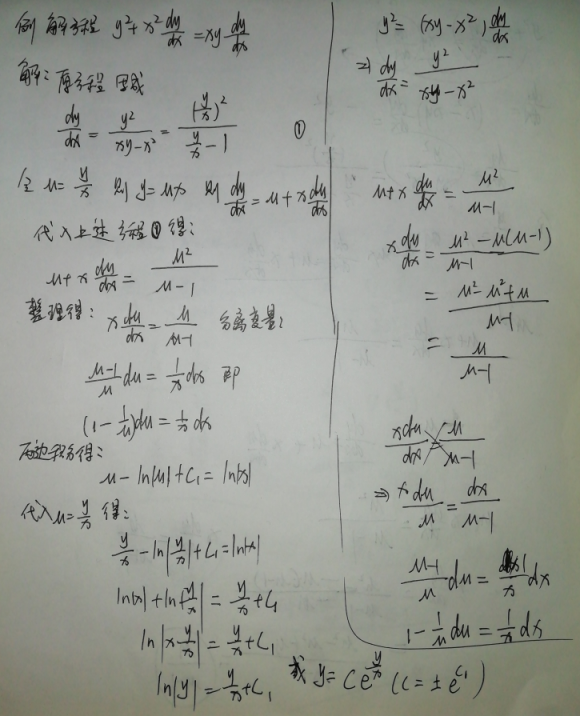 例 解方程 y²+x²dy/dx=xy dy/dx
解: 原方程 写成
dy/dx = y²/(xy-x²) = (y/x)²/(y/x - 1) ①
令 u=y/x 则 y=ux 则 dy/dx=u+x du/dx
代入上述方程①得:
u+x du/dx = u²/(u-1)
整理得: x du/dx = u/(u-1) 分离变量:
(u-1)/u du = 1/x dx 即
(1-1/u)du = 1/x dx
两边积分得:
u-ln|u|+C₁ = ln|x|
代入u=y/x 得:
y/x - ln|y/x|+C₁=ln|x|
ln|x|+ln|y/x| = y/x+C₁
ln|x·y/x| = y/x+C₁
ln|y| = y/x+C₁ 或 y=Ce^(y/x) (C=±e^(C₁))
y² = (xy-x²)dy/dx
⇒ dy/dx = y²/(xy-x²)
u+x du/dx = u²/(u-1)
x du/dx = (u²-u(u-1))/(u-1)
= (u²-u²+u)/(u-1)
= u/(u-1)
xdu/dx = u/(u-1)
⇒ xdu/u = dx/(u-1)
(u-1)/u du = 1/x dx
1-1/u du = 1/x dx